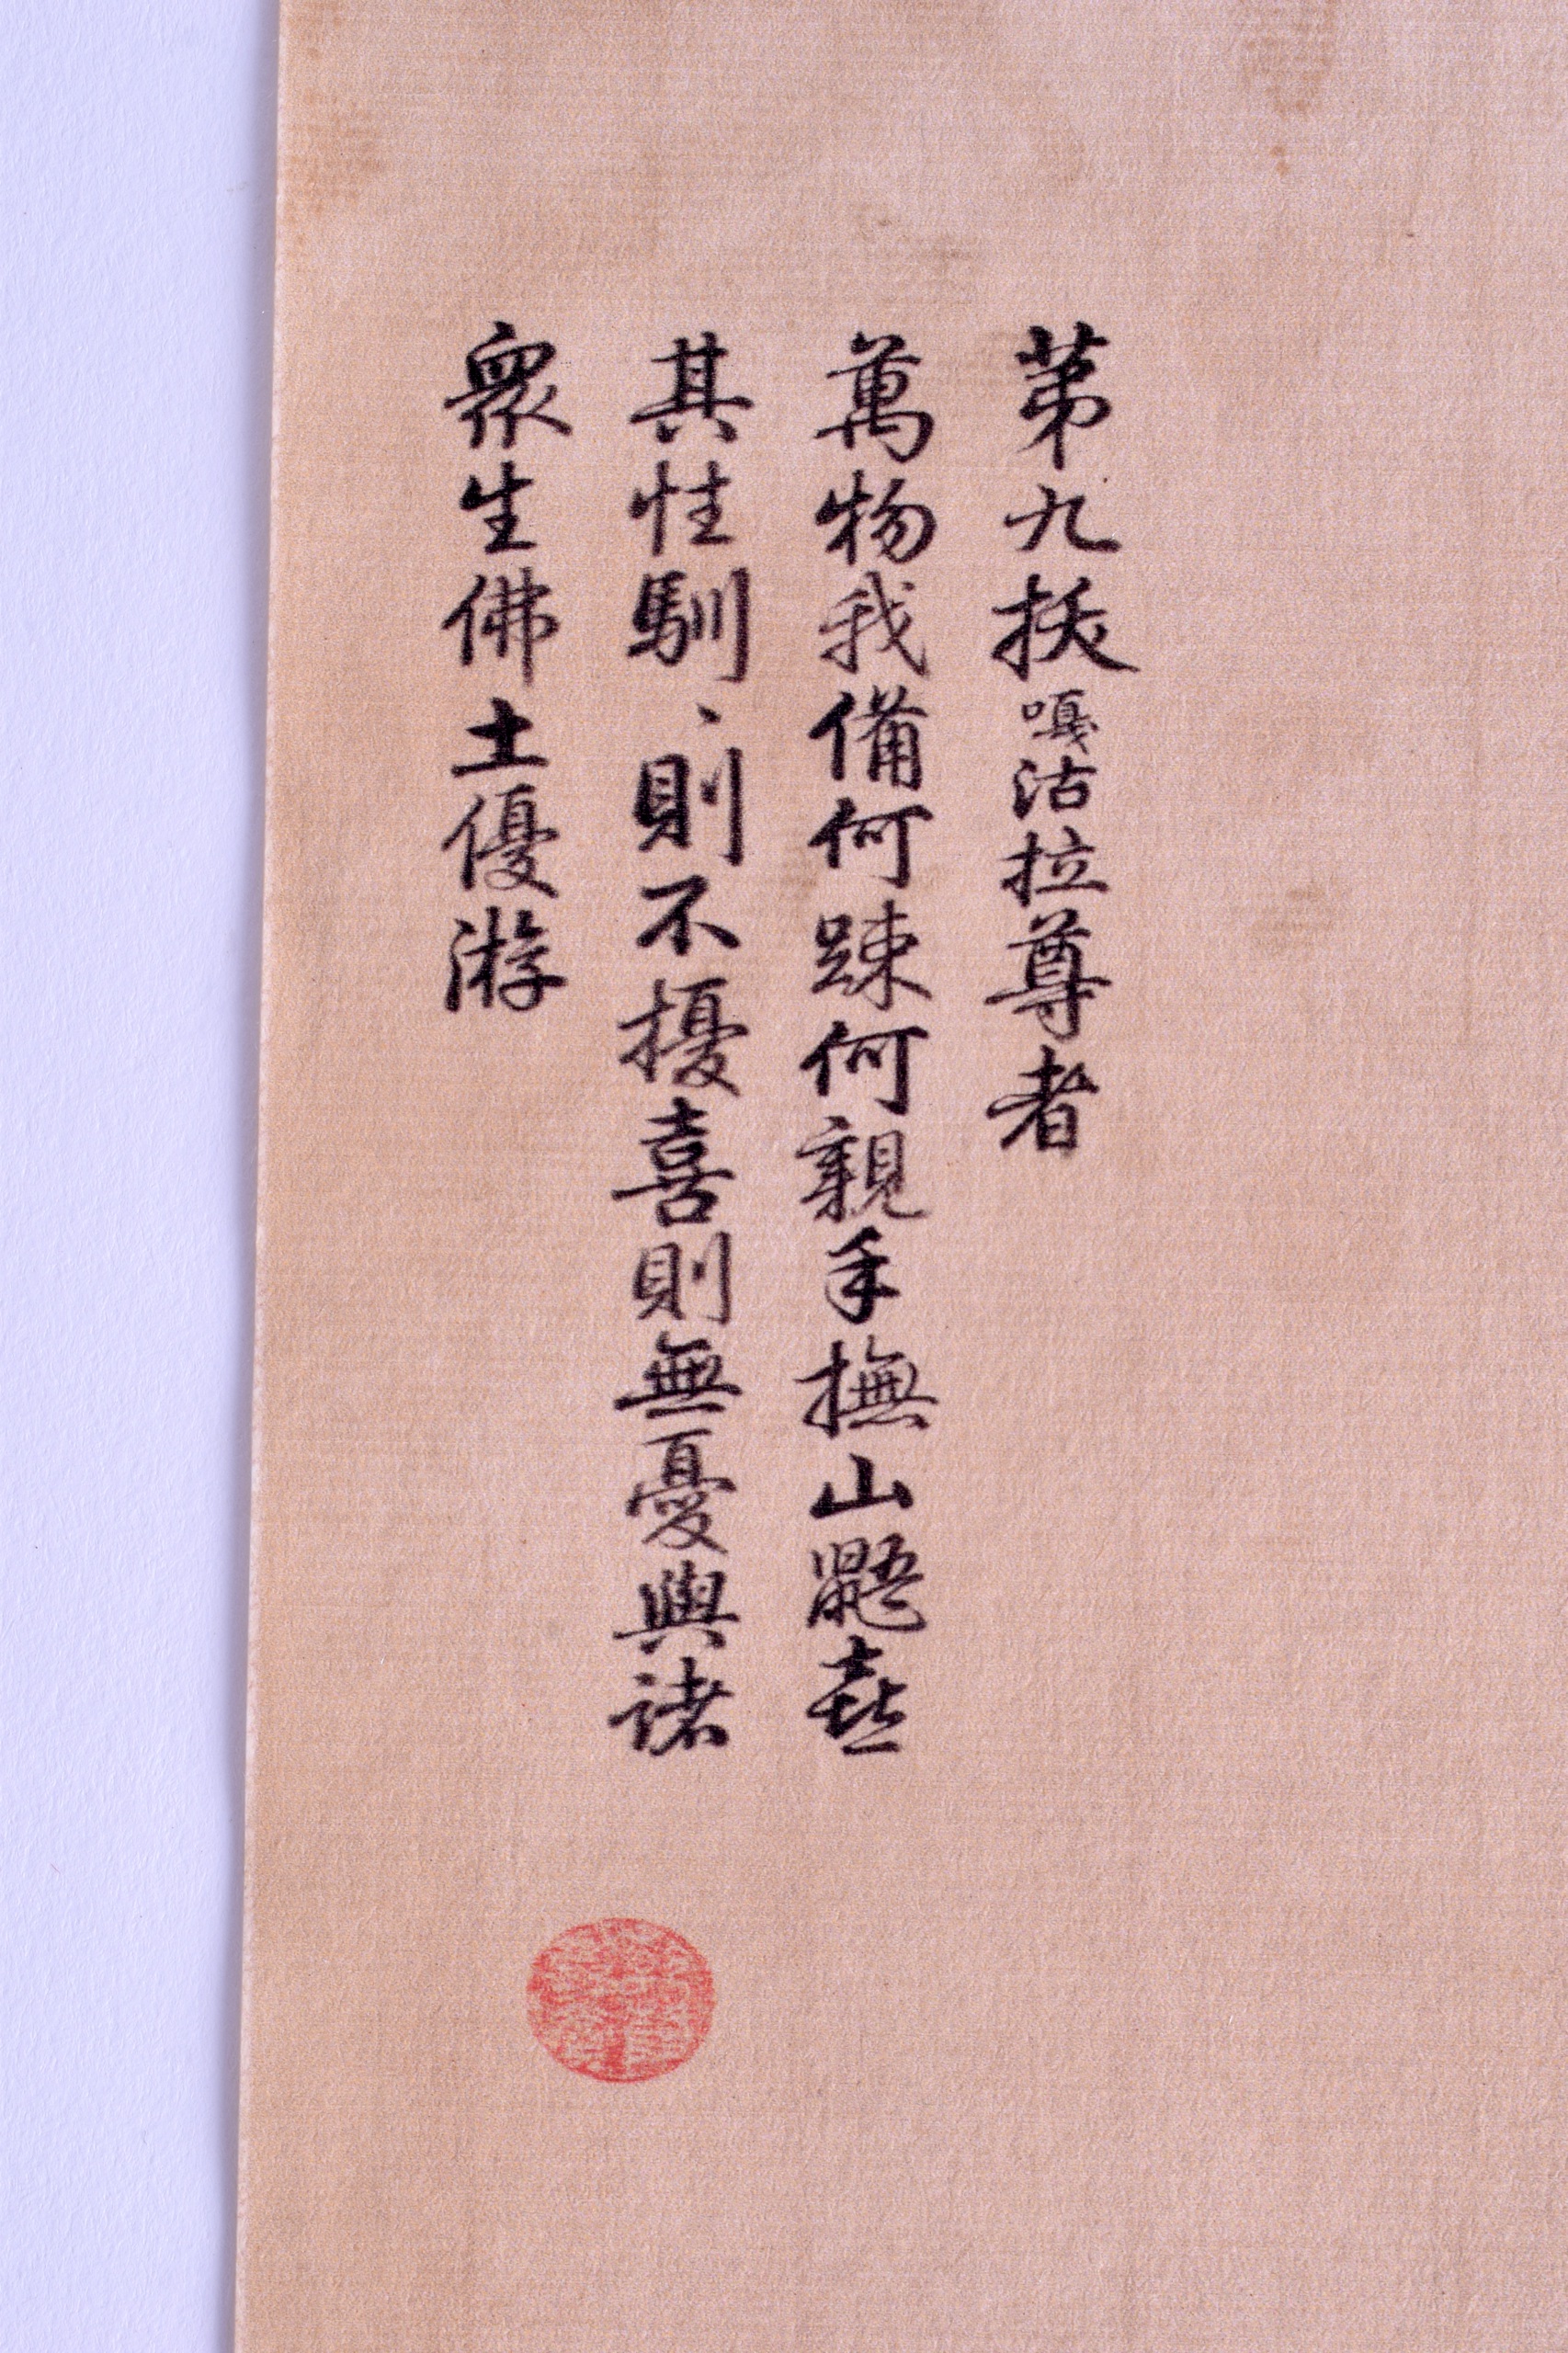 苐九拔嘎沽拉尊者
萬物我備何踈何親手撫山鼯喜
其性馴、則不擾喜則無憂與諸
眾生佛土優游